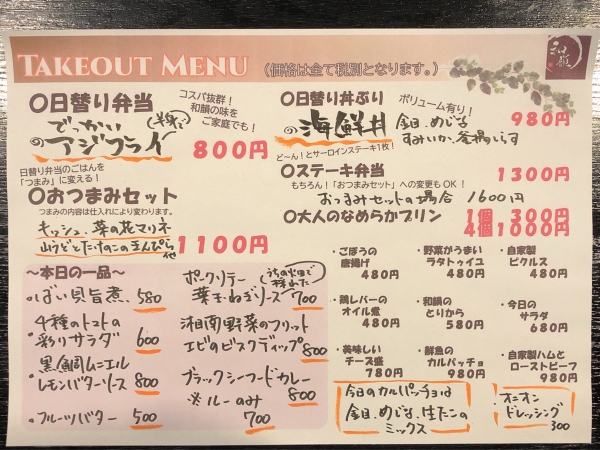 TAKEOUT MENU （価格は全て税別となります。）
〇日替り弁当
コスパ抜群！
和韻の味を
ご家庭でも！
でっかい
のアジフライ
800円
日替り弁当のごはんを
「つまみ」に変える！
〇おつまみセット
つまみの内容は仕入れにより変わります。
キッシュ、菜の花マリネ
山うどとたけのこのきんぴら
他
1100円
〇日替り丼ぶり
ボリューム有り！
の海鮮丼
980円
金目、めじな
すみいか、釜揚しらす
ど〜ん！とサーロインステーキ1枚！
〇ステーキ弁当
1300円
もちろん！「おつまみセット」への変更もOK！
おつまみセットの場合 1600円
〇大人のなめらかプリン
1個 300円
4個1000円
〜本日の一品〜
・ばい貝旨煮 580
・4種のトマトの
彩りサラダ 600
・黒鯛ムニエル
レモンバターソース 800
・フルーツバター 500
・ポークソテー
うちの畑で
採れた
葉玉ねぎソース 700
・湘南野菜のフリット
エビのビスクディップ 800
・ブラックシーフードカレー
800
※ルーのみ
700
・ごぼうの
唐揚げ
480円
・野菜がうまい
ラタトゥイユ
480円
・自家製
ピクルス
480円
・鶏レバーの
オイル煮
480円
・和韻の
とりから
580円
・今日の
サラダ
680円
・美味しい
チーズ盛
780円
・鮮魚の
カルパッチョ
980円
・自家製ハムと
ローストビーフ
980円
今日のカルパッチョは
金目、めじな、生たこの
ミックス
・オニオン
ドレッシング
300